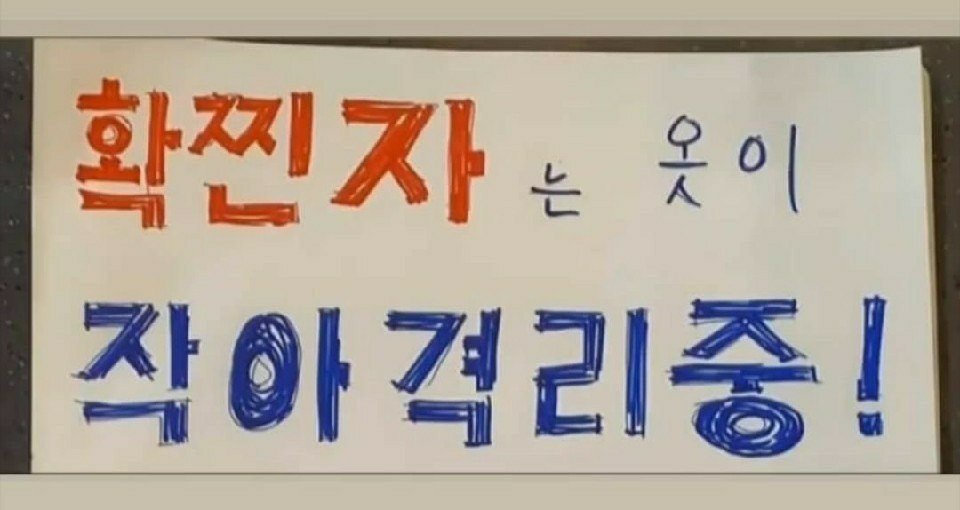 확찐자는 옷이
작아격리중!